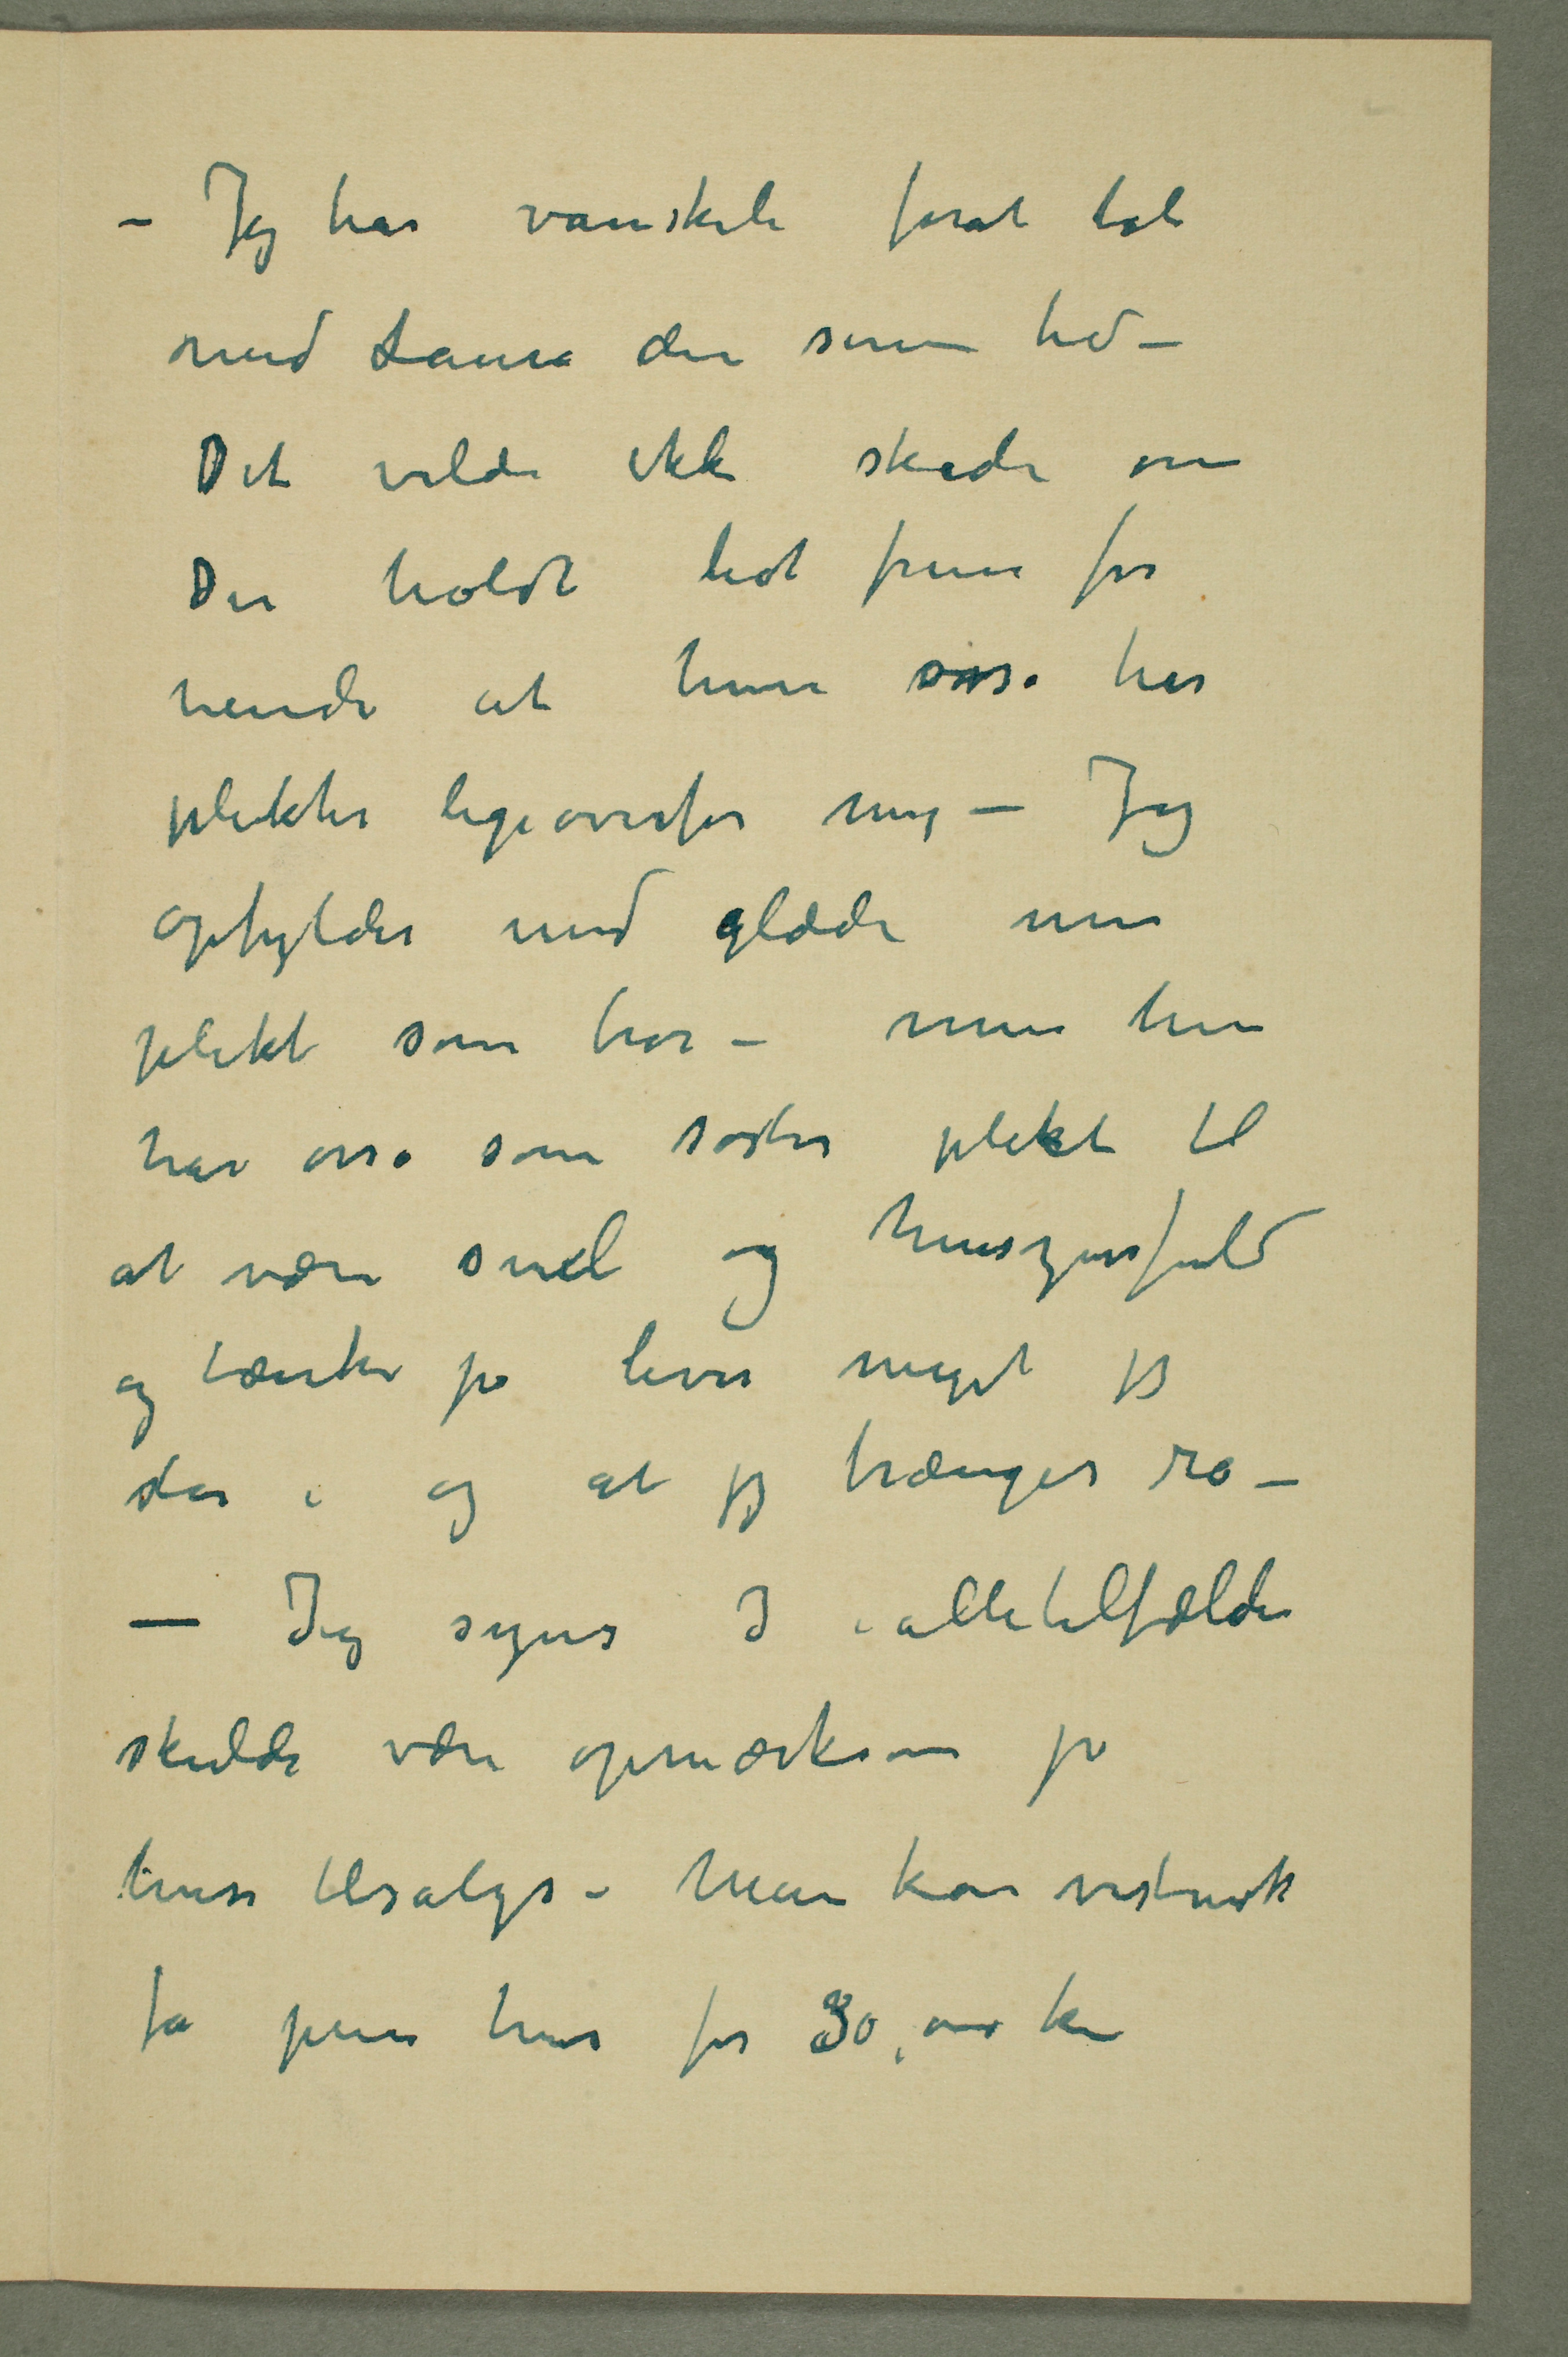 – Jeg har vanskeli forat tale
med Laura den senere tid –
Det vilde ikke skade om
Du holdt lidt frem for
hende at hun osså har
plikter ligeoverfor mig – Jeg
opfylder med glæde min
plikt som bror – men hun
har osså som søster plikt til
at være snil og hensynsfuld
og tænke på hvor meget jeg
står i og at jeg trænger ro –
– Jeg synes I i alletilfælde
skulde være opmærksom på
huse tilsalgs – Man kan vistnok
få pene hus for 30,000 kr